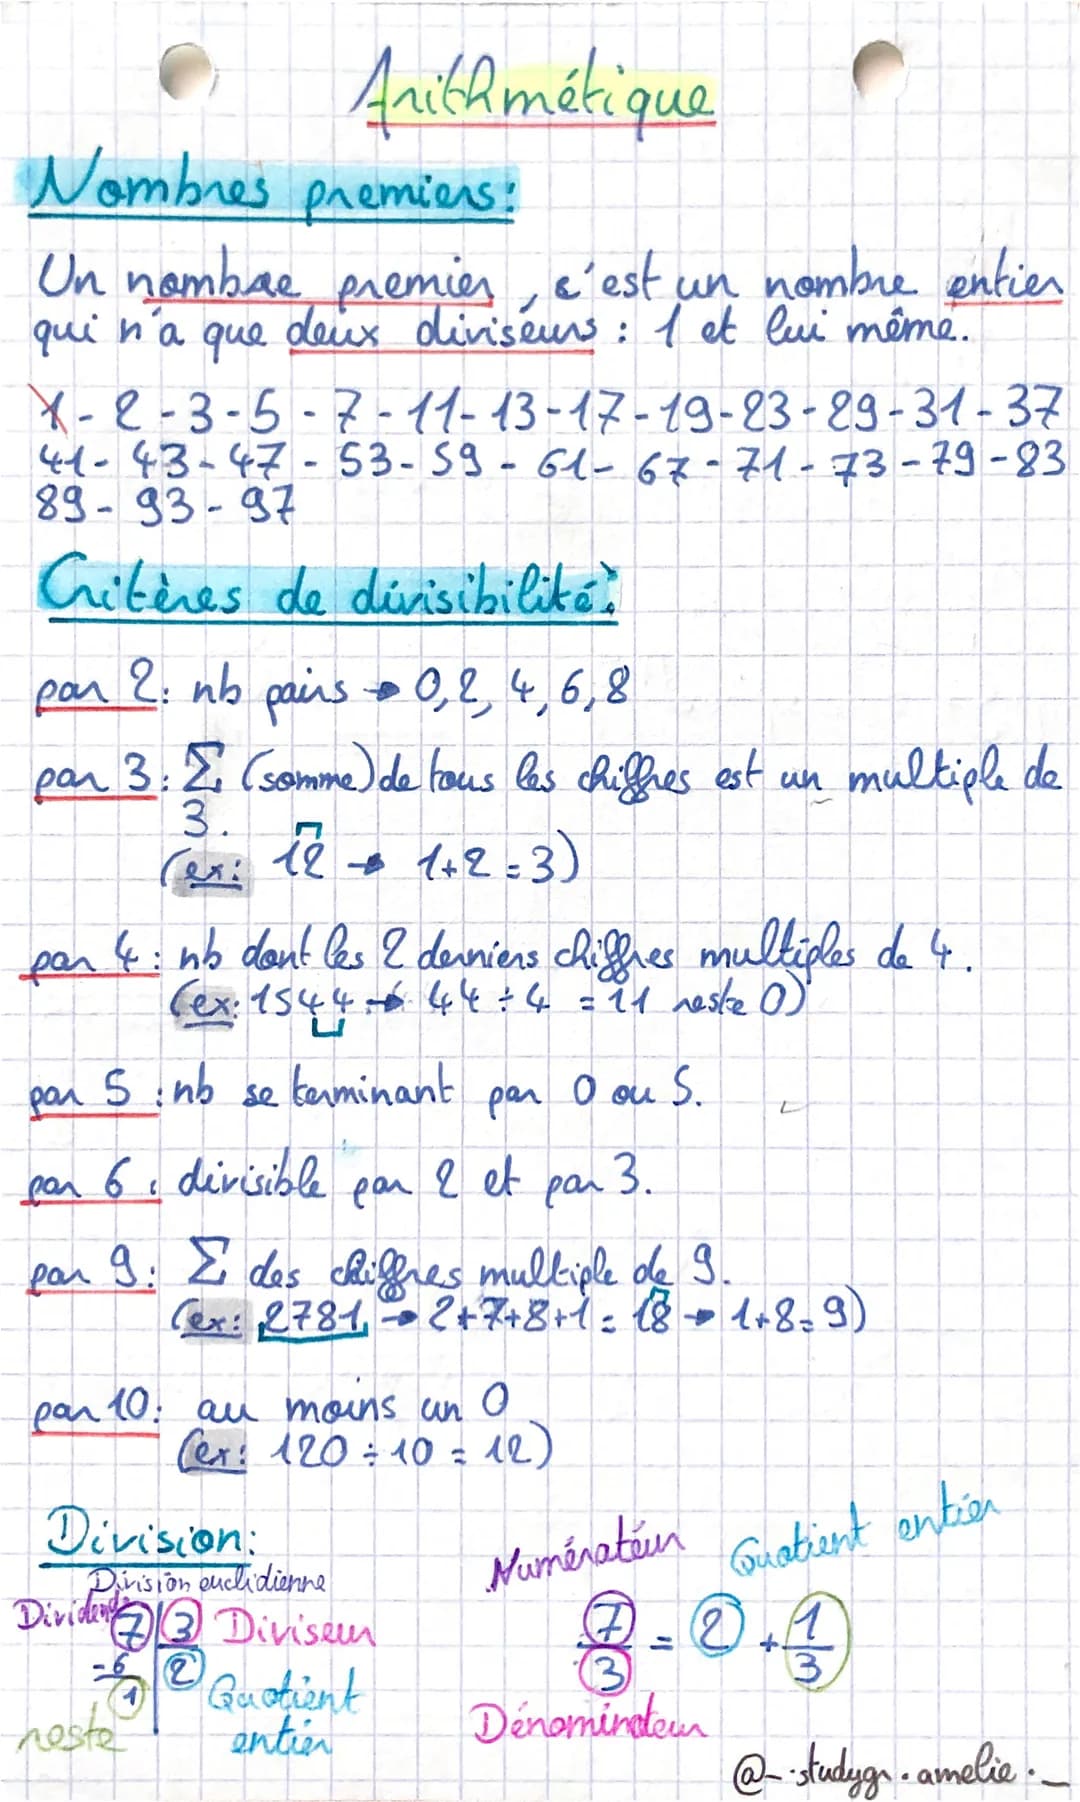 Arithmétique
Nombres premiers:
Un nombre premier, c'est un nombre entier
qui n'a que deux diviseurs : 1 et lui même.
1 - 2 - 3 - 5 - 7 - 11 - 13 - 17 - 19 - 23 - 29 - 31 - 37
41 - 43 - 47 - 53 - 59 - 61 - 67 - 71 - 73 - 79 - 83
89 - 93 - 97
Critères de divisibilité:
par 2: nb pairs → 0, 2, 4, 6, 8
par 3: Σ (somme) de tous les chiffres est un multiple de
3.
(ex: 12 → 1+2=3)
par 4: nb dont les 2 derniers chiffres multiples de 4.
(ex: 1544 → 44 ÷ 4 = 11 reste 0)
par 5: nb se terminant par 0 ou 5.
par 6: divisible par 2 et par 3.
par 9: Σ des chiffres multiple de 9.
(ex: 2781 → 2+7+8+1 = 18 → 1+8=9)
par 10: au moins un 0
(ex: 120 ÷ 10 = 12)
Division:
Division euclidienne
Dividende 7 3 Diviseur
-6 2 Quotient
1 entier
reste
Numérateur Quotient entier
7/3 = 2 + 1/3
Dénominateur
@_.studygr.amelie._